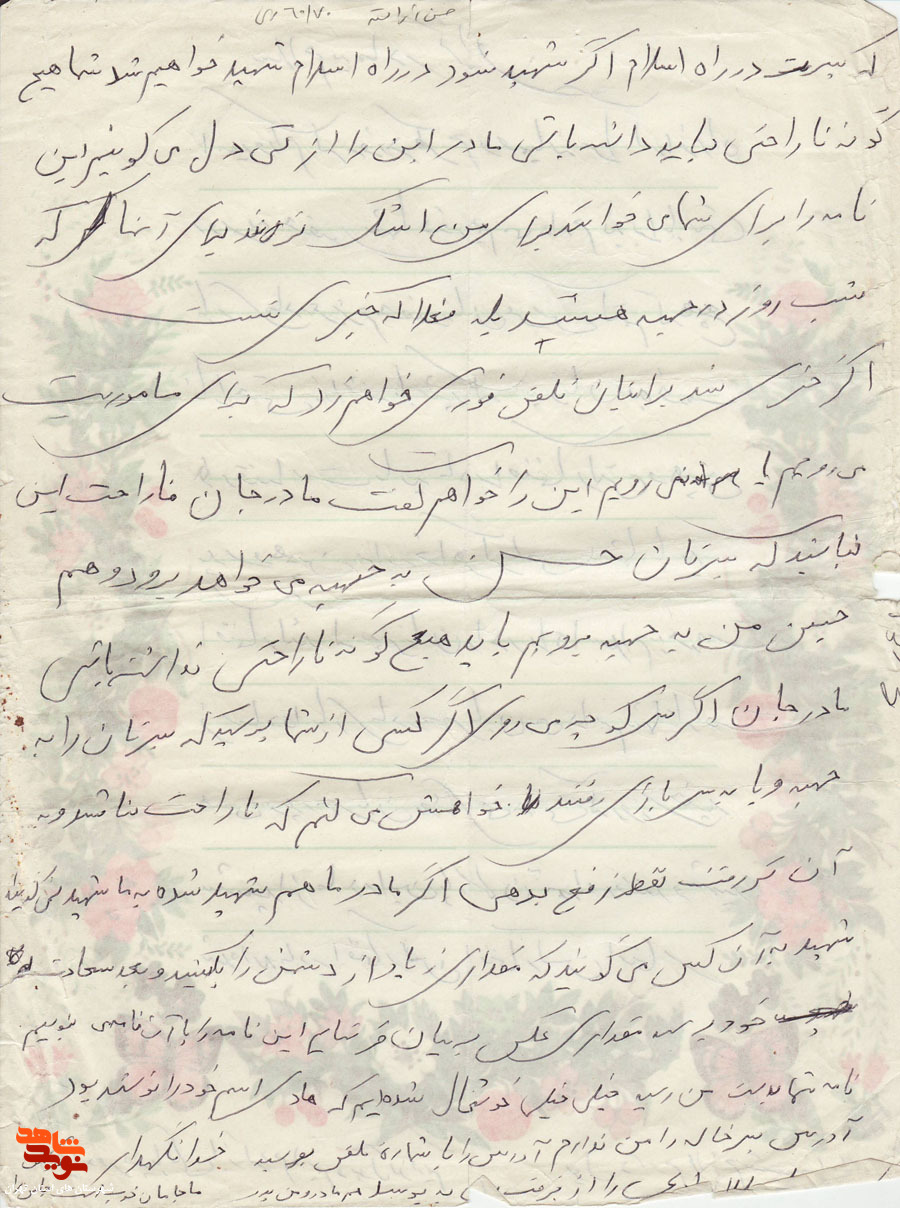 که پسرت در راه اسلام اگر شهید شود در راه اسلام شهید خواهیم شد شما هیچ
گونه ناراحتی نباید داشه باشی مادر این را از تی دل می گوینم این
نامه را برای شهای خواستد برای من اشک نریزند برای آنها که
شب روز در جبهه هستید بله فعلا که خبری نیست
اگر خبری شد برایتان تلفن فوری خواهم زد که برای ماموریت
می رویم یا نمی رویم این را خواهم گفت مادر جان ناراحت این
نباشید که پسرتان حسن به جبهه می خواهد برود و هم
چنین من به جبهه برویم باید هیچ گونه ناراحتی نداشته باشی
مادر جان اگر سر کوچه می روی اگر کسی از شما پرسید که پسرتان را به
جبهه و یا به سربازی رفتند خواهش می کنم که ناراحت نباشد و به
آن اگر مادر ما هم شهید شده به ما شهید نمی گویند
شهید به آن کس می گویند که مقداری زیاد از دشمن را بکشید و بعد سعادت
خود برسد مقداری عکس به یتان فرستایم این نامه را با آن نامه می نویسم
نامه شما بدست من رسید خیلی خیلی خوشحال شده ایم که هادی اسم خود را نوشته بود
آدرس پسر خاله را من ندارم آدرس را با شماره تلفن بفرسید خدا نگهدار
شاهد
نوید